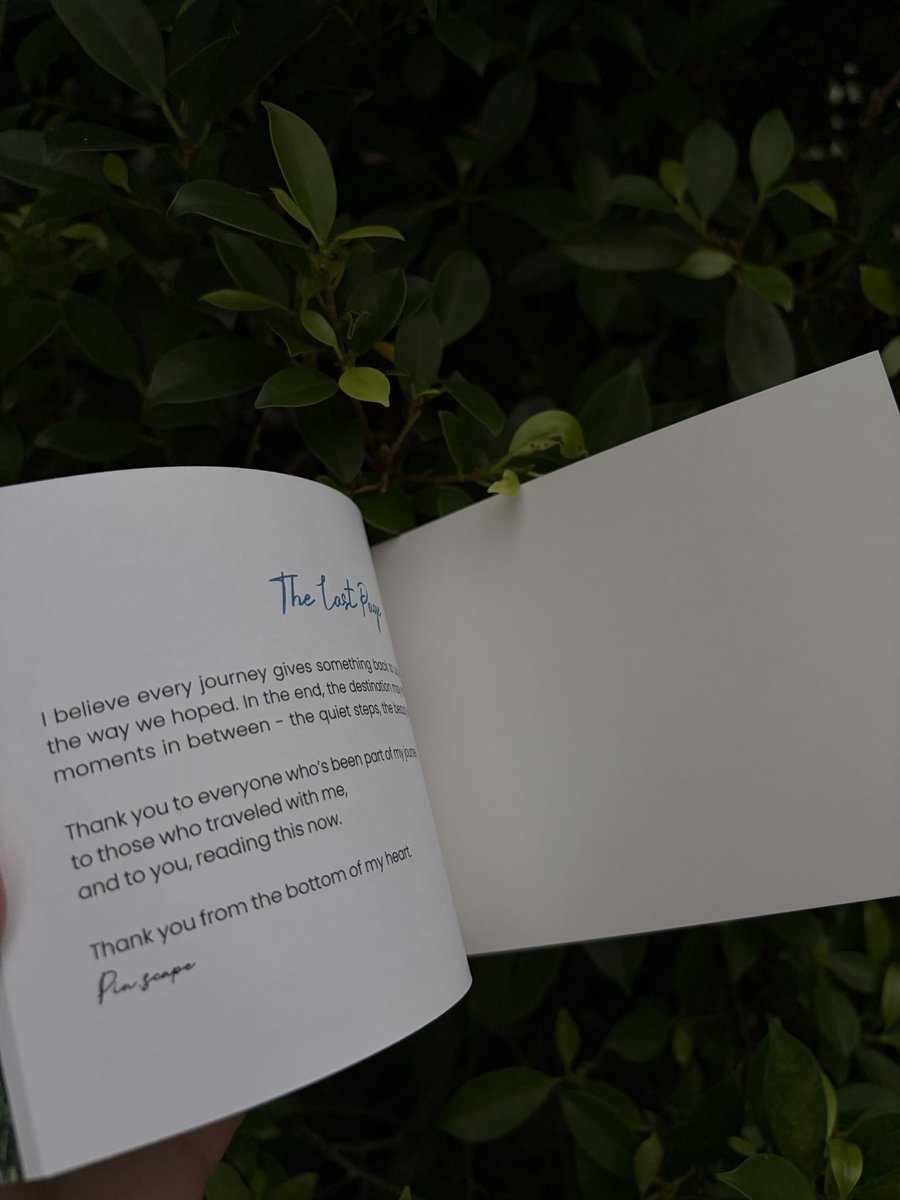 The Last Page
I believe every journey gives something back to
the way we hoped. In the end, the destination
moments in between - the quiet steps, the
Thank you to everyone who's been part of my
to those who traveled with me,
and to you, reading this now.
Thank you from the bottom of my heart.
Pin.scape